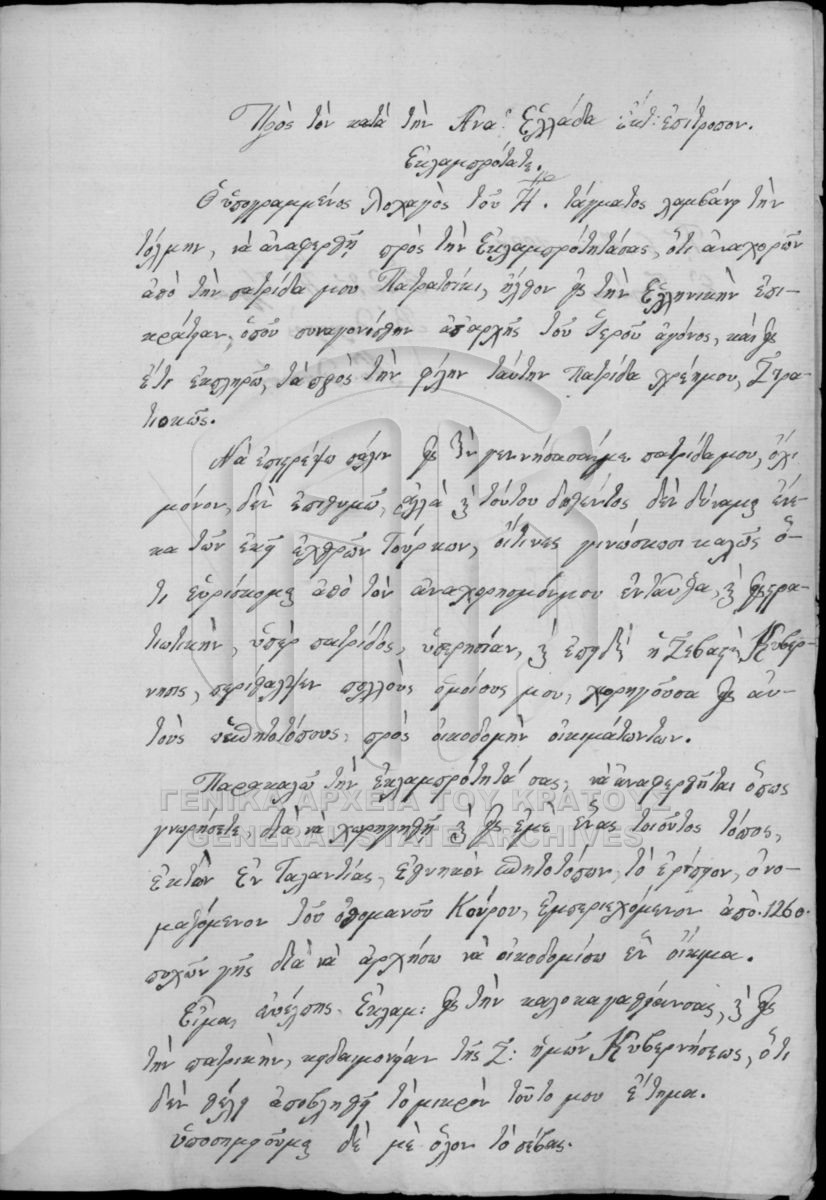 Πρὸς τὸν κατὰ τὴν Ανα: Ἑλλάδα ἐκτ: ἐπίτροπον.
Ἐκλαμπρότατε.
Ὁ ὑπογραμμένος λοχαγὸς τοῦ Ή. τάγματος λαμβάνῃ τὴν
τόλμην, νὰ ἀναφερθῇ πρὸς τὴν Ἐκλαμπρότητάσας, ὅτι ἀναχορῶν
ἀπὸ τὴν πατρίδα μου Πατρατσίκι, ἦλθον εἰς τὴν Ἑλληνικὴν ἐπι-
κράτειαν, ὁποῦ συναγονίσθην ἀπἀρχῆς τοῦ Ἱεροῦ ἀγόνος, καὶ εἰς
ἔτι ἐκπληρῶ, τὰ πρὸς τὴν φίλην ταύτην πατρίδα χρέημου, Στρα-
τιοκῶς.
Νὰ ἐπιστρέψω πάλιν εἰς τὴν γεννήσασάνμε πατρίδαμου, ὄχι
μόνον, δὲν ἐπιθυμῶ, ἀλλὰ καὶ τούτου δοθέντος δὲν δύναμαι ἕνε-
κα τῶν ἐκεῖ ἐχθρῶν Τούρκων, οἵτινες γινώσκωσι καλῶς ὅ-
τι εὑρίσκομαι ἀπὸ τὸν ἀναχορησμόνμου ἐνταῦθα, καὶ εἰς στρα-
τιωτικὴν, ὑπὲρ πατρίδος, ὑπηρησίαν, καὶ ἐπηδὴ ἡ Σεβαστὴ Κυβέρ-
νησις, περίθαλψεν πολλοὺς ὁμοίους μου, χορηγοῦσα εἰς αὐ-
τοὺς σπητοτόπους, πρὸς οἰκοδομὴν οἰκιμάτωντων.
Παρακαλῶ τὴν ἐκλαμπρότητά σας, νὰ ἀναφερθῆται ὅπως
γνωρήσετε, διὰ νὰ χορηγηθῇ καὶ εἰς ἐμὲ ἕνας τοιοῦτος τόπος,
ΓΕΝΙΚΑ ΑΡΧΕΙΑ ΤΟΥ ΚΡΑΤΟΥΣ
GENERAL STATE ARCHIVES
ἐκτῶν Ἐν Ταλαντίῳ, ἐθνικῶν σπητοτόπων, τὸ ἐρίπιον, ὀνο-
μαζόμενον τοῦ ὀθομανοῦ Κούρου, ἐμπεριεχόμενον ἀπὸ. 1260.
πυχῶν γῆς διὰ νὰ ἀρχήσω νὰ οἰκοδομίσω ἓν οἴκιμα.
Εἶμαι εὔελπης. Ἐκλαμ: εἰς τὴν καλοκαγαθίανσας, καὶ εἰς
τὴν πατρικὴν, κηδαιμονίαν τῆς Σ: ἡμῶν Κυβερνήσεως, ὅτι
δὲν θέλῃ ἀποβληθῇ τὸ μικρὸν τοῦτο μου ἔτημα.
ὑποσημιοῦμαι δὲ μὲ ὅλον τὸ σέβας.